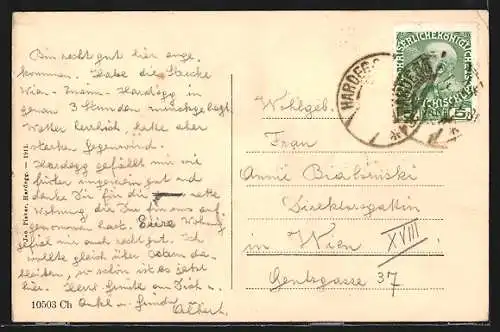 Bin recht gut hier ange-
kommen. Habe die Strecke
Wien - Znaim - Hardegg in
genau 3 Stunden zurückgelegt.
Wetter herrlich, hatte aber
starken Gegenwind.
Hardegg gefällt mir wie
früher ungemein gut und
danke Dir für die nette
Wohnung die Du für uns auf-
genommen hast. Eure Wohnung
gefiel mir auch recht gut. Ich
wollte gleich über Ostern da-
bleiben, so schön ist es jetzt
hier. Herzl. Grüße an Dich,
Onkel u.
Albert.
Wohlgeb.
Frau
Annie Bialonski
Direktorsgattin
in Wien
XVIII
Gentzgasse 37
HARDEGG
Jos. Fischer, Hardegg. — 1911.
10503 Ch